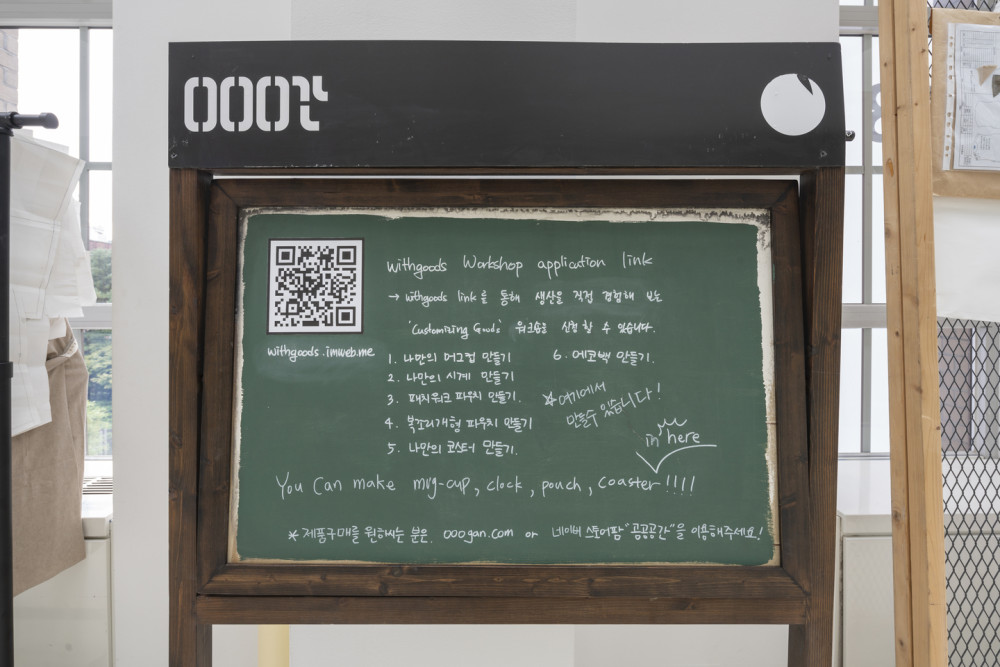 000간
withgoods Workshop application link
→ withgoods link를 통해 생산을 직접 경험해 보는
'Customizing Goods' 워크숍을 신청할 수 있습니다.
withgoods.imweb.me
1. 나만의 머그컵 만들기
2. 나만의 시계 만들기
3. 패치워크 파우치 만들기.
4. 복조리개형 파우치 만들기
5. 나만의 코스터 만들기.
6. 에코백 만들기.
☆여기에서
만들수 있습니다!
in here
You Can make mug-cup, clock, pouch, coaster!!!!
* 제품구매를 원하시는 분은. 000gan.com or 네이버 스토어팜 "공공공간"을 이용해주세요!